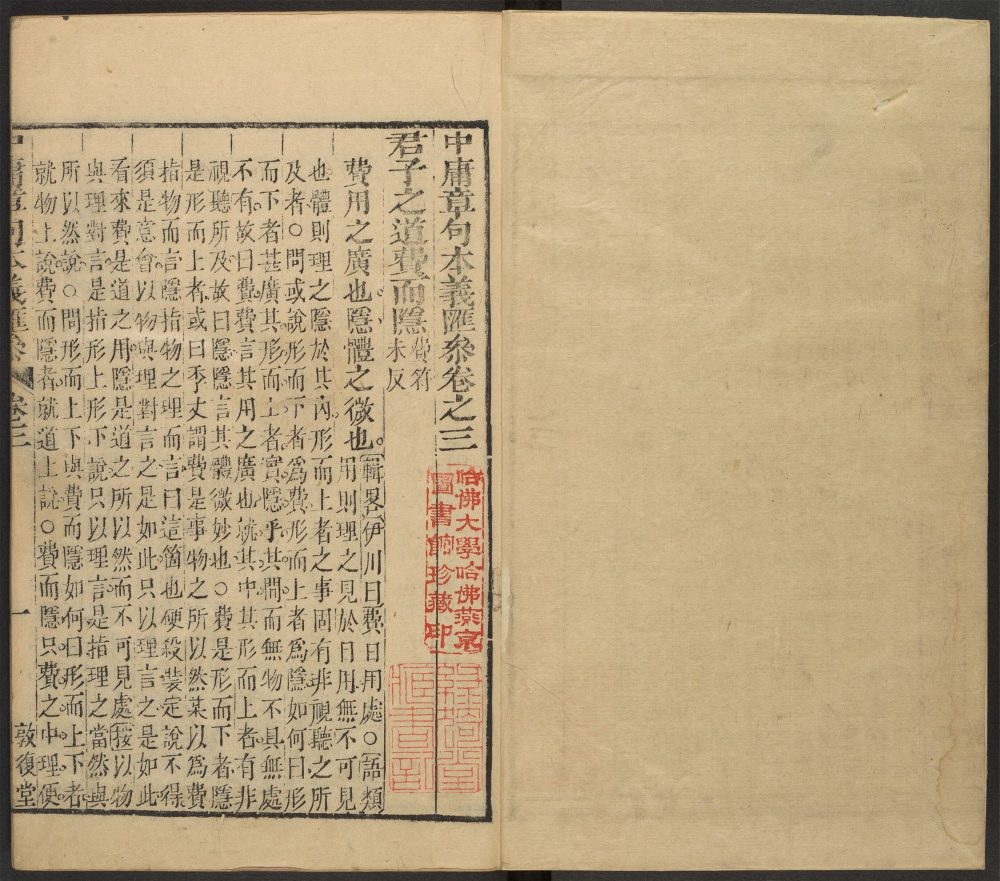 中庸章句本義匯參卷之三
君子之道費而隱費符味反
費用之廣也隱體之微也輯畧伊川曰費日用處○語類
用則理之見於日用無不可見
也體則理之隱於其內形而上者之事固有非視聽之所
及者○問或說形而下者爲費形而上者爲隱如何曰形
而下者甚廣其形而上者實隱乎其間而無物不具無處
不有故曰費費言其用之廣也就其中其形而上者有非
視聽所及故曰隱隱言其體微妙也○費是形而下者隱
是形而上者或曰季丈謂費是事物之所以然某以爲費
指物而言隱指物之理而言曰這箇也硬殺裝定說不得
須是意會以物與理對言之是如此只以理言之是如此
看來費是道之用隱是道之所以然而不可見處按以物
與理對言是指形上形下說只以理言是指理之當然與
所以然說○問形而上下與費而隱如何曰形而上下者
就物上說費而隱者就道上說○費而隱只費之中理便
中庸章句本義匯參 卷三 一 敦復堂
哈佛大學哈佛燕京
圖書館珍藏印